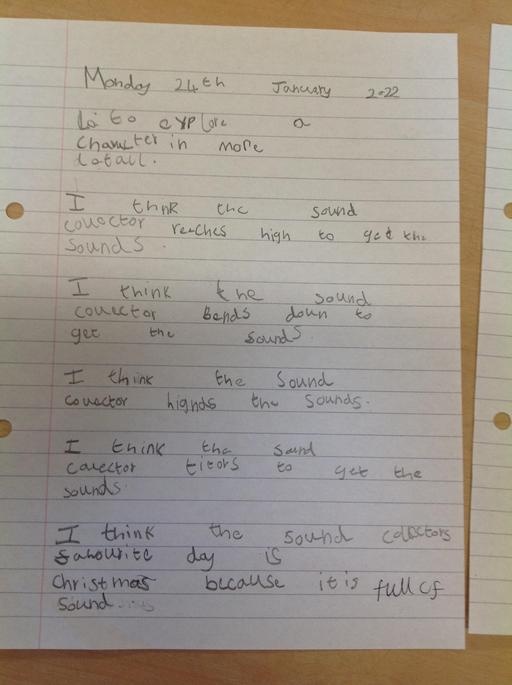 Monday 24th January 2022
Lo to explore a
character in more
detail.
I think the sound
couector reaches high to get the
sounds.
I think the sound
couector bends down to
get the sounds.
I think the sound
couector highds the sounds.
I think the sound
couector titors to get the
sounds.
I think the sound collectors
favourite day is
christmas because it is full of
sound